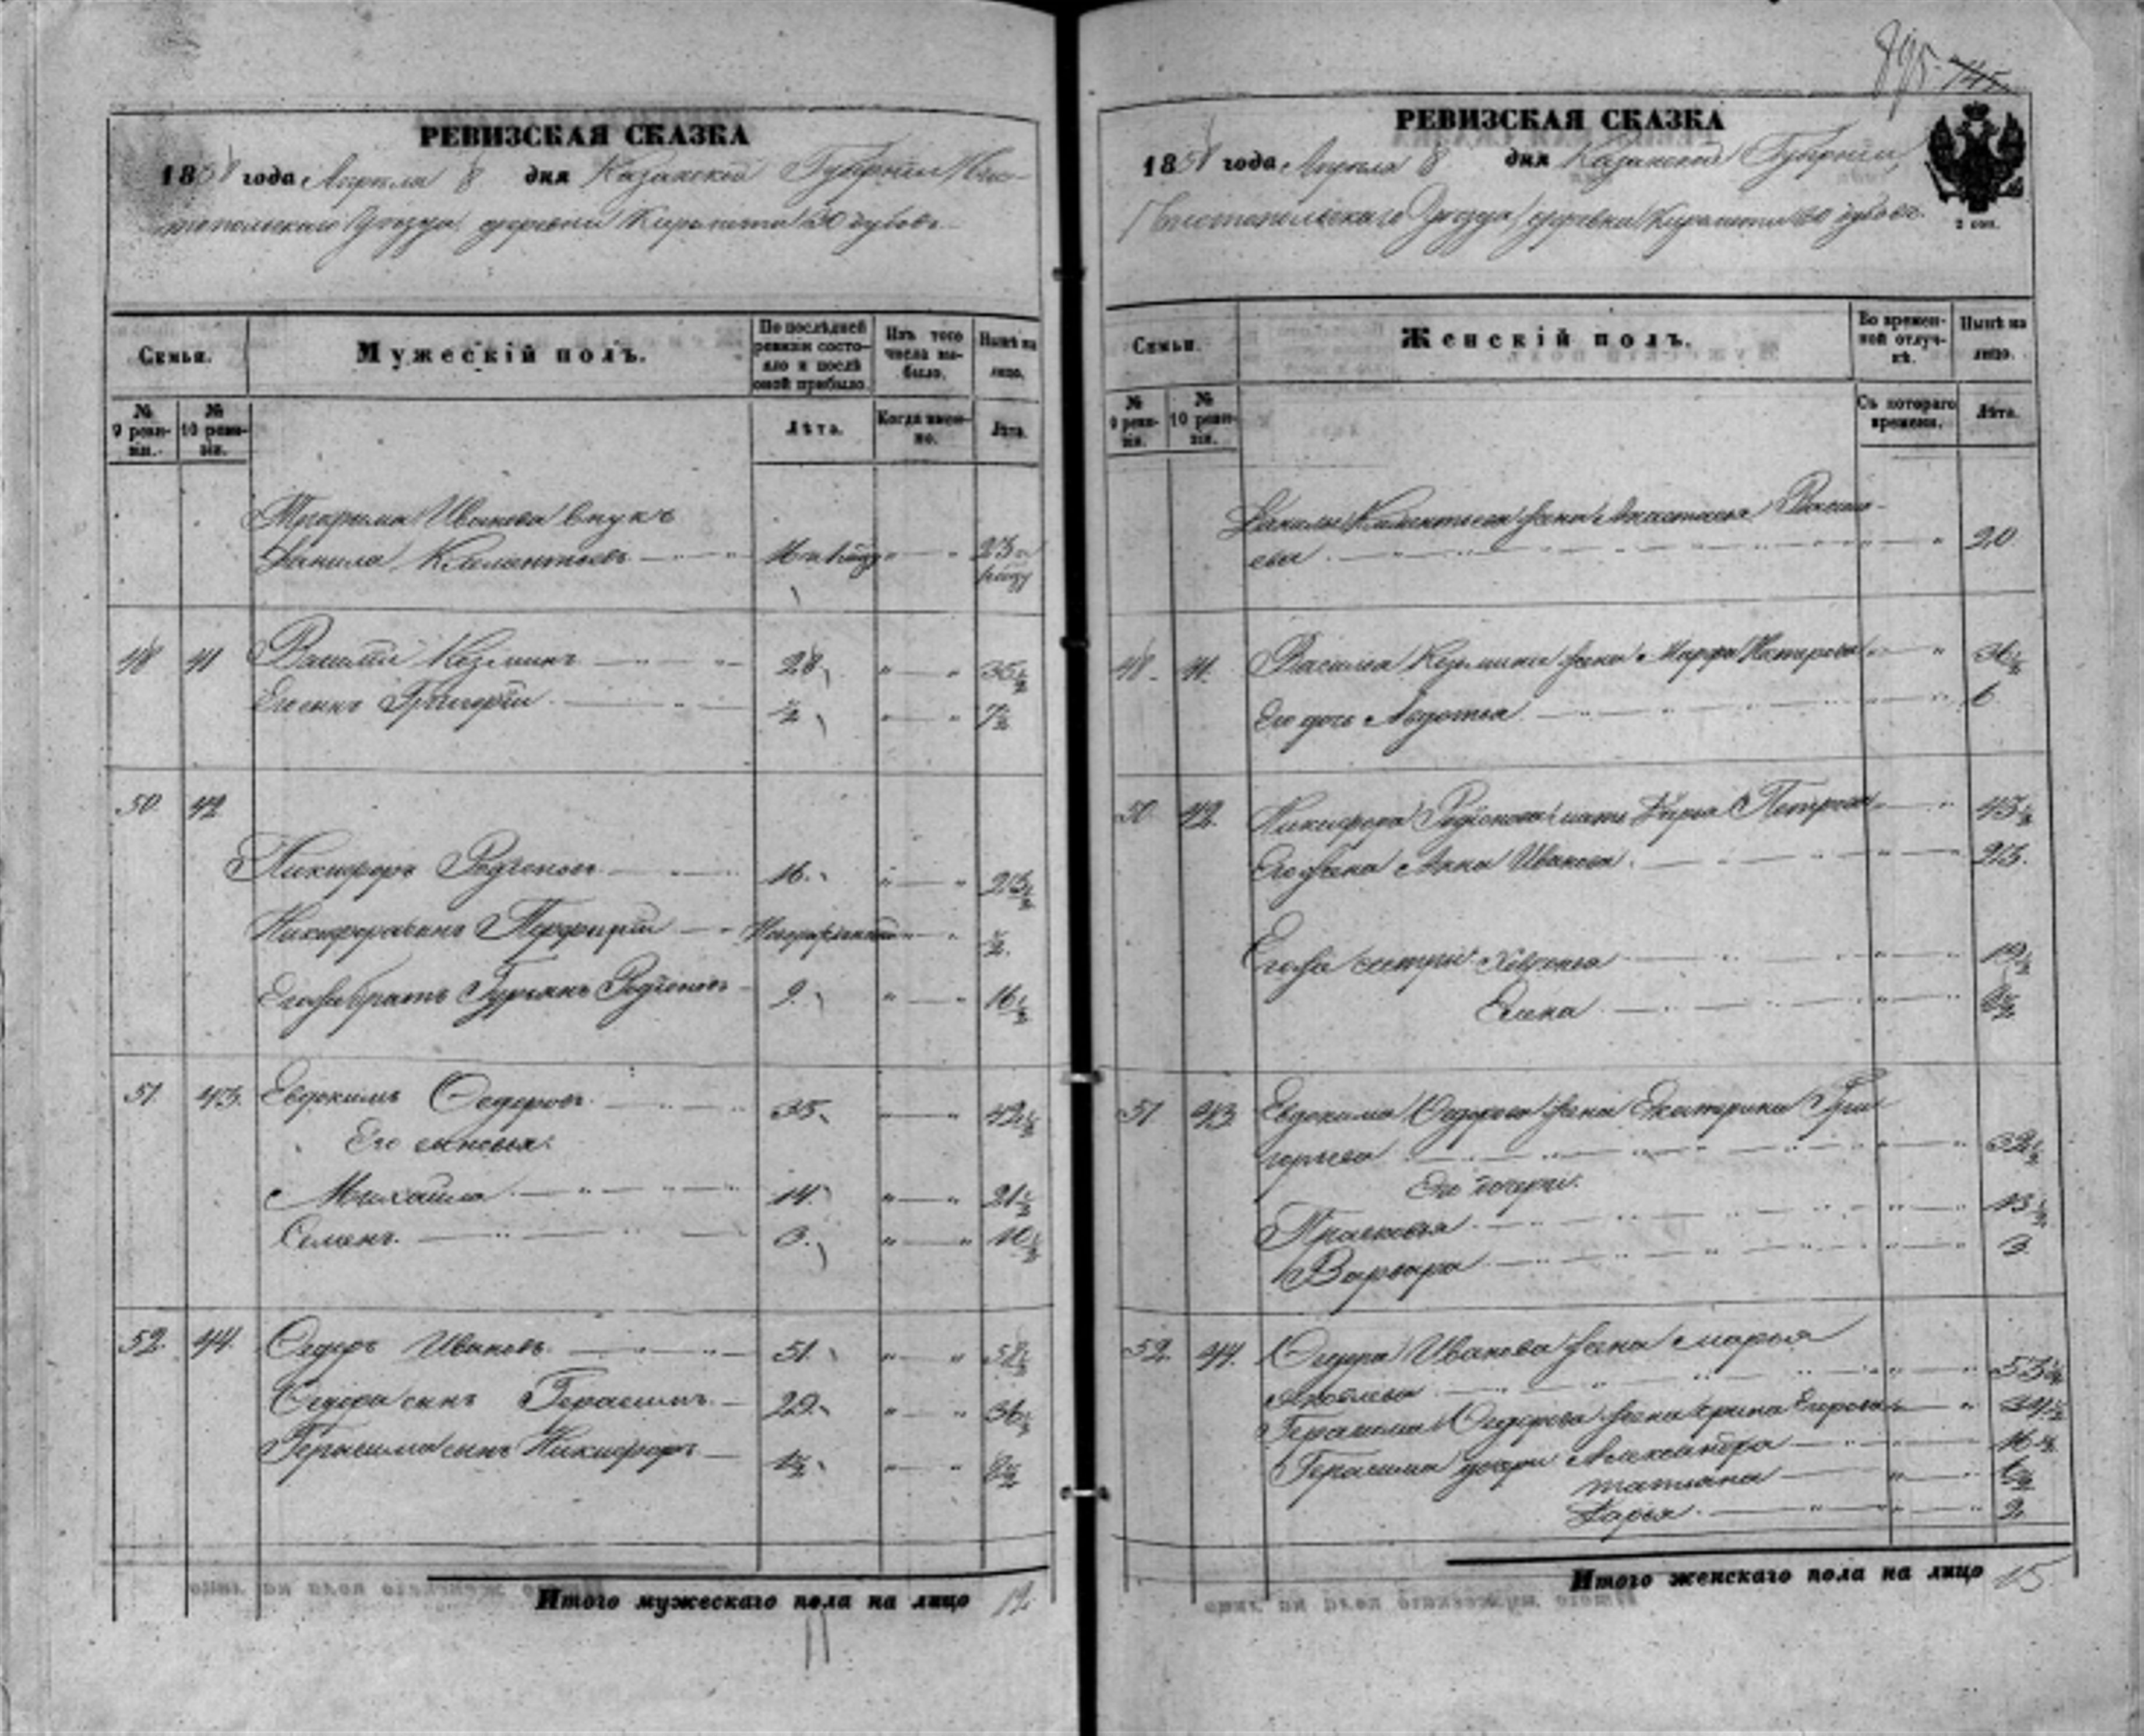 РЕВИЗСКАЯ СКАЗКА
1858 года Апреля 8 дня Казанской Губернiи Чис-
топольскаго Уѣзда деревни
Семьи.
Мужескiй полъ.
По послѣдней ревизiи состояло и послѣ оной прибыло.
Изъ того числа выбыло.
Нынѣ на лицо.
№ 9 ревизiи.
№ 10 ревизiи.
Лѣта.
Когда именно.
Лѣта.
Иванова внукъ
Данила Климентьевъ 23
48 41 Василiй Козминъ 28 35½
Его сынъ Григорiй ½ 7½
50 42
Никифоръ Родiоновъ 16 23½
Никифора сынъ Порфирiй ½
Его же братъ Гурьянъ Родiоновъ 9 16½
51 43 Евдокимъ Федоровъ 35 42½
Его сыновья:
Михайла 14 21½
Семенъ 3 10½
52 44 Федоръ Ивановъ 51 58½
Федора сынъ Герасимъ 29 36½
Герасима сынъ Никифоръ 1½ 8½
Итого мужескаго пола на лицо 12
11
895 745
РЕВИЗСКАЯ СКАЗКА
1858 года Апреля 8 дня Казанской Губернiи,
Чистопольскаго Уѣзда деревни
2 коп.
Семьи.
Женскiй полъ.
Во временной отлучкѣ.
Нынѣ на лицо.
№ 9 ревизiи.
№ 10 ревизiи.
Съ котораго времени.
Лѣта.
Данилы Климентьева жена Анастасья Василь-
ева 20
48 41 Василья Козьмина жена Марфа
Его дочь Авдотья 6
50 42 Никифора Родiонова мать Дарья Петрова 43½
Его жена Анна Иванова 23
Его же сестры Хавронья 19½
Елена 8½
51 43 Евдокима Федорова жена Екатерина Гри
горьева 32½
Его дочери:
Прасковья 13½
Варвара 3
52 44 Федора Иванова жена Марья
Яковлева 53½
Герасима Федорова жена Ирина Егорова 34½
Герасима дочери Александра 16½
Татьяна
Дарья 2
Итого женскаго пола на лицо 15